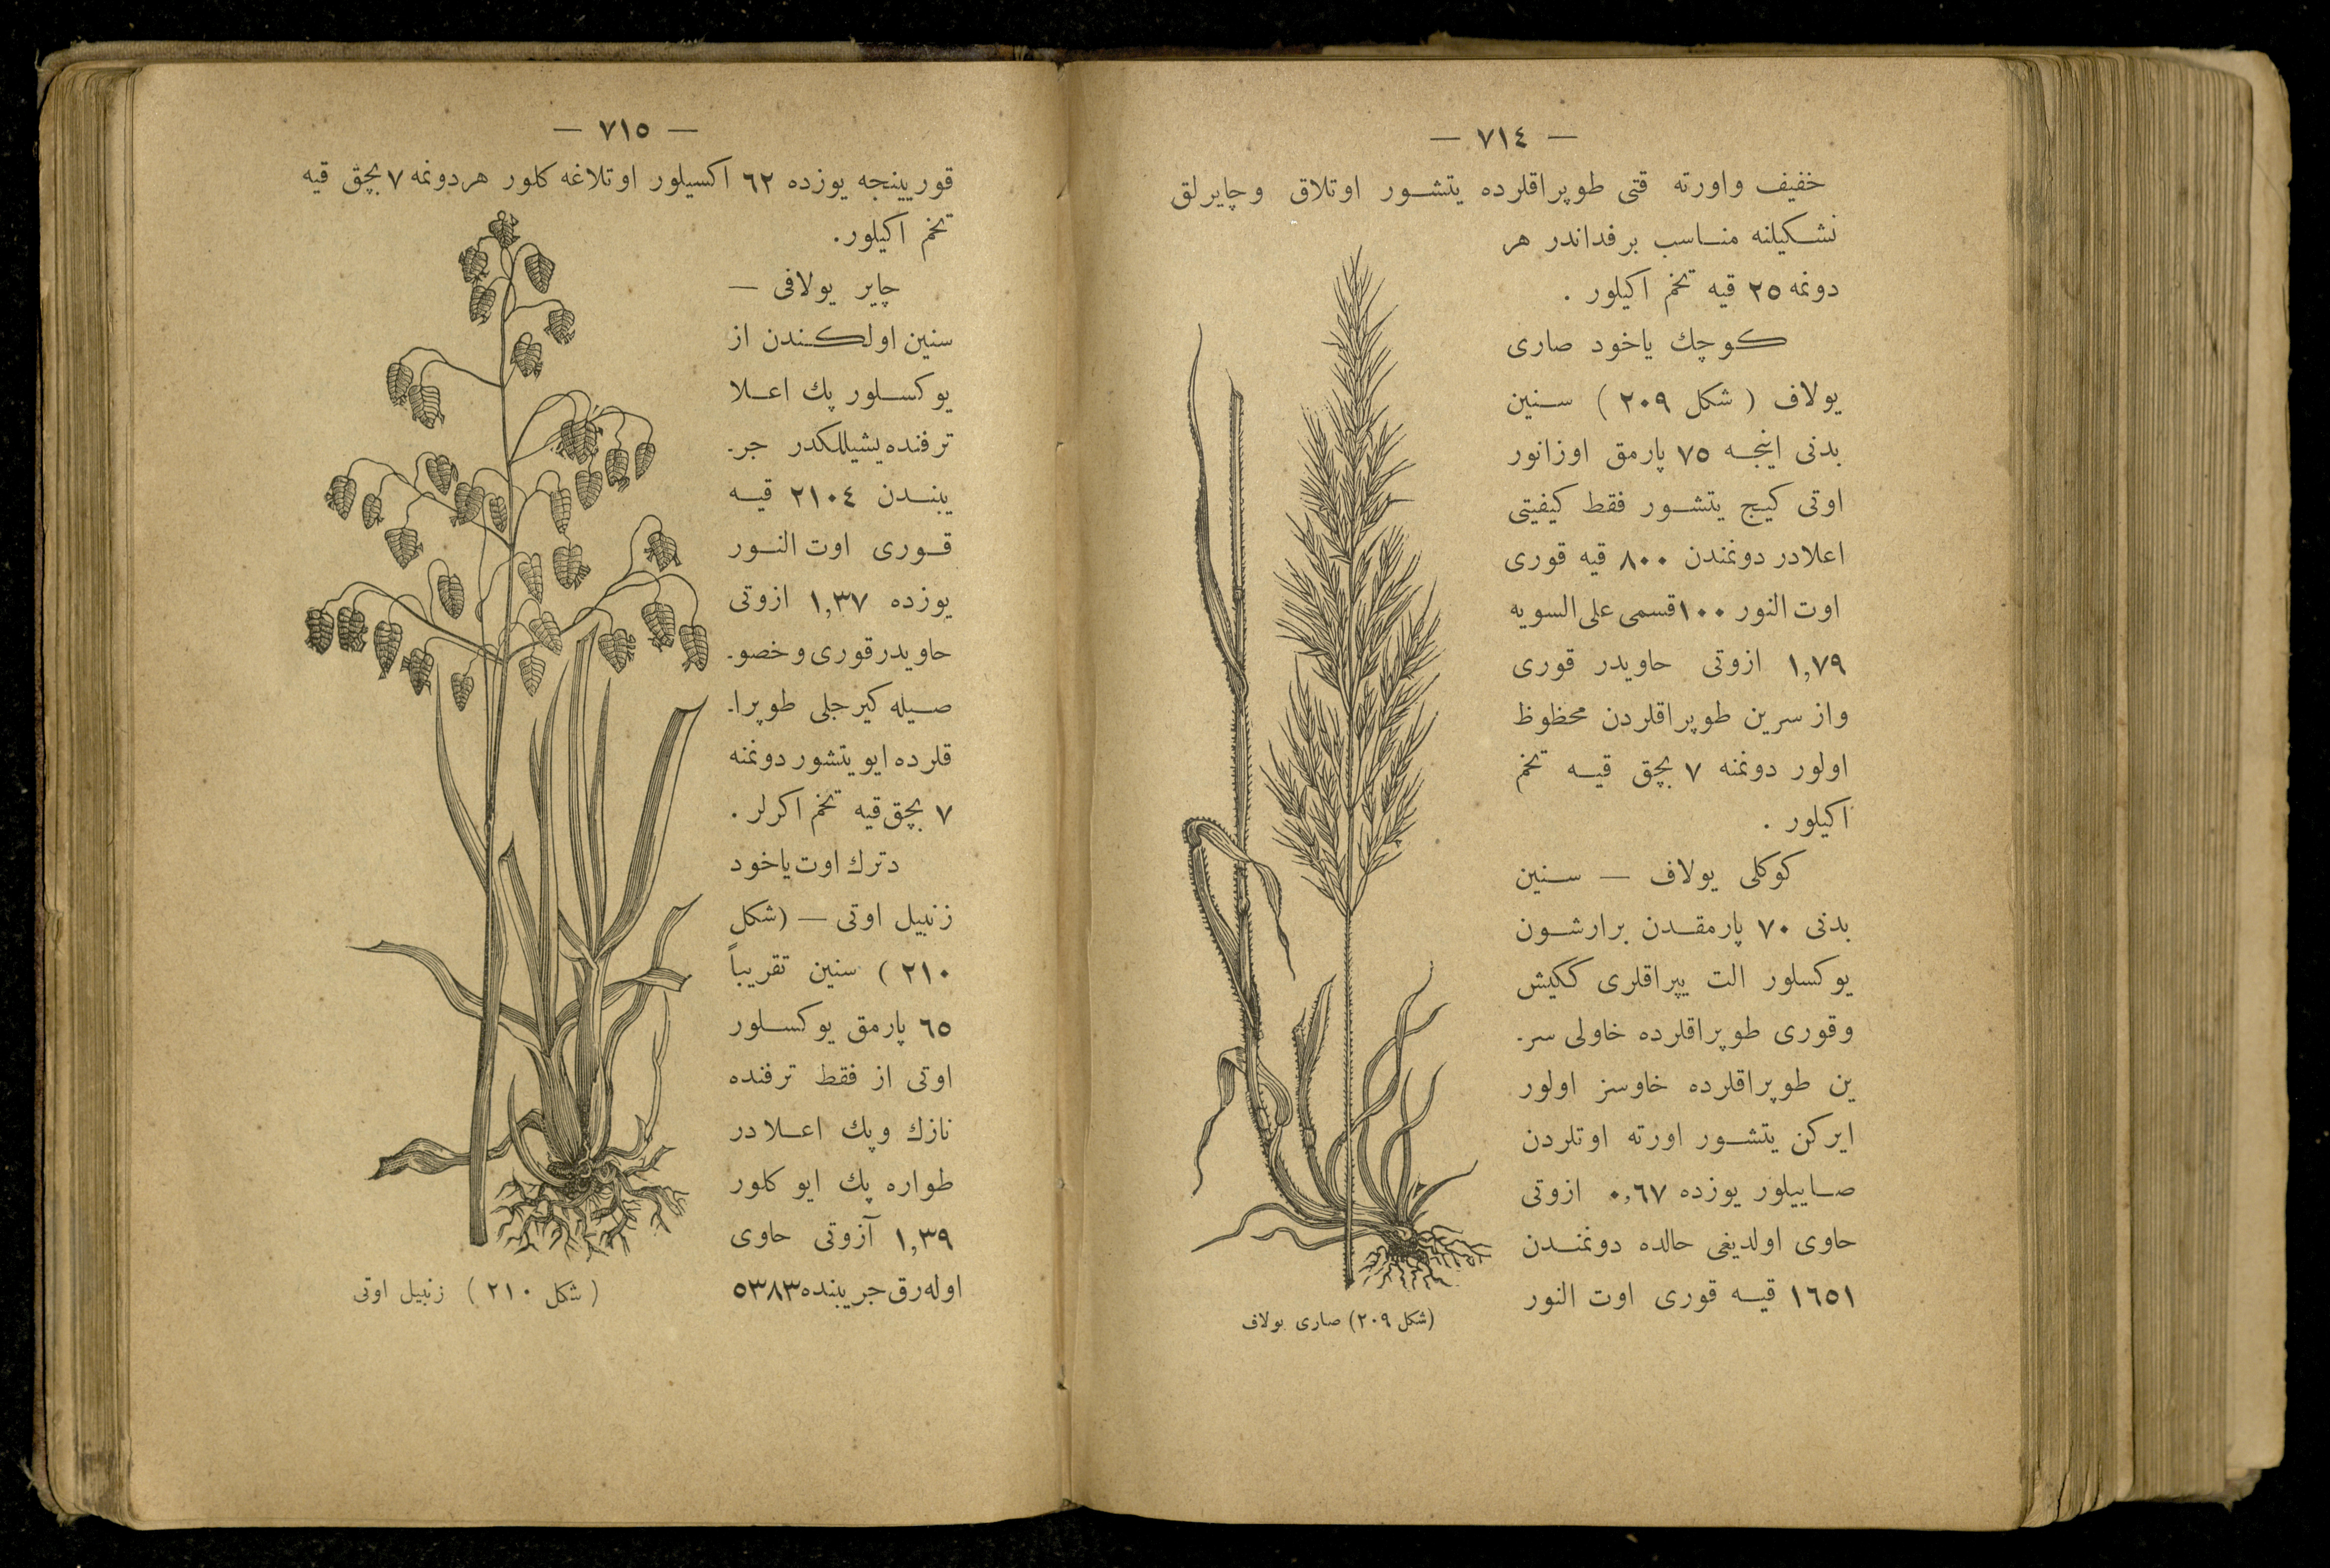 — ٧١٤ —
خفیف واورته قتی طوپراقلرده یتشور اوتلاق وچایرلق
تشکیلنه مناسب برفداندر هر
دونمه ٢٥ قیه تخم اکیلور .
کوچك یاخود صاری
یولاف ( شکل ٢٠٩ ) سنین
بدنی اینجه ٧٥ پارمق اوزانور
اوتی کیج یتشور فقط کیفیتی
اعلادر دونمندن ٨٠٠ قیه قوری
اوت النور ١٠٠ قسمی علی السویه
١,٧٩ ازوتی حاویدر قوری
واز سرین طوپراقلردن محظوظ
اولور دونمنه ٧ بچق قیه تخم
اکیلور .
کوکلی یولاف — سنین
بدنی ٧٠ پارمقدن برارشون
یوکسلور الت یپراقلری ککیش
وقوری طوپراقلرده خاولی سر-
ین طوپراقلرده خاوسز اولور
ایرکن یتشور اورته اوتلردن
صاییلور یوزده ٠,٦٧ ازوتی
حاوی اولدیغی حالده دونمندن
١٦٥١ قیه قوری اوت النور
(شکل ٢٠٩) صاری یولاف
— ٧١٥ —
قوریینجه یوزده ٦٢ اکسیلور اوتلاغه کلور هردونمه ٧ بچق قیه
تخم اکیلور.
چایر یولافی —
سنین اولکندن از
یوکسلور پك اعلا
ترفنده یشیللکدر جر-
یبندن ٢١٠٤ قیه
قوری اوت النور
یوزده ١,٣٧ ازوتی
حاویدر قوری وخصو-
صیله کیرجلی طوپرا-
قلرده ایو یتشور دونمنه
٧ بچق قیه تخم اکرلر .
دترك اوت یاخود
زنبیل اوتی — (شکل
٢١٠ ) سنین تقریباً
٦٥ پارمق یوکسلور
اوتی از فقط ترفنده
نازك وپك اعلادر
طواره پك ایو کلور
١,٣٩ آزوتی حاوی
اوله رق جریبنده ٥٣٨٣
( شکل ٢١٠ ) زنبیل اوتی